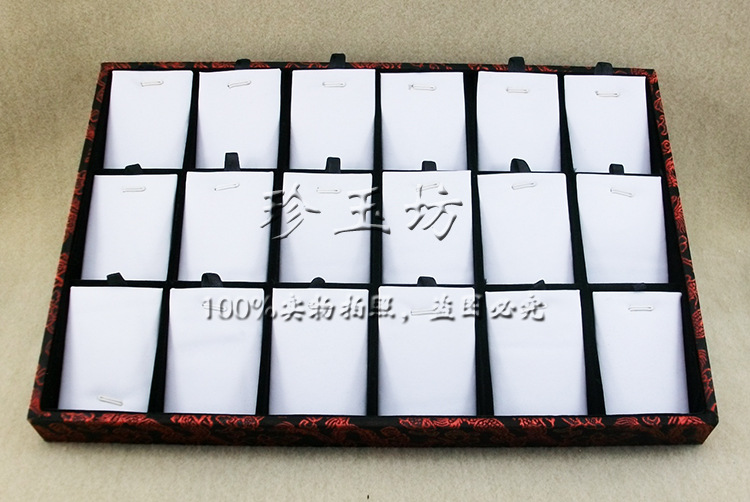 珍玉坊
100%实物拍照，盗图必究